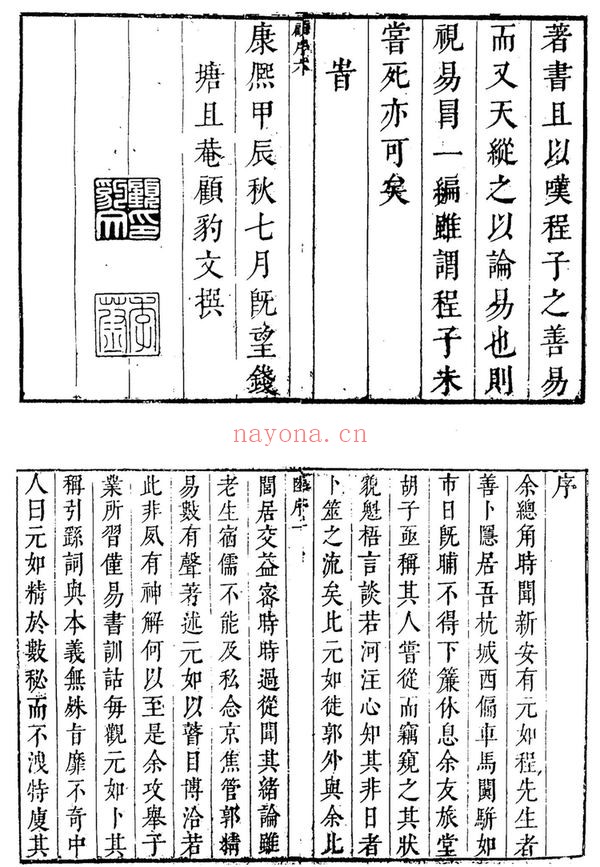 著書且以嘆程子之善易
而又天縱之以論易也則
視易冐一編雖謂程子未
嘗死亦可矣
旹
康熈甲辰秋七月旣望錢
塘且菴顧豹文撰
nayona.cn
序
余總角時聞新安有元如程先生者
善卜隱居吾杭城西偏車馬闐駢如
市日旣晡不得下簾休息余友旅堂
胡子亟稱其人嘗從而竊窺之其狀
貌魁梧言談若河汪心知其非日者
卜筮之流矣比元如徒郭外與余比
閭居交益密時時過從聞其緒論雖
老生宿儒不能及私念京焦管郭精
易數有聲著述元如以瞽目博洽若
此非夙有神解何以至是余攻舉子
業所習僅易書訓詁每觀元如卜其
稱引繇詞與本義無姝旨靡不奇中
人曰元如精於數秘而不洩特廋其